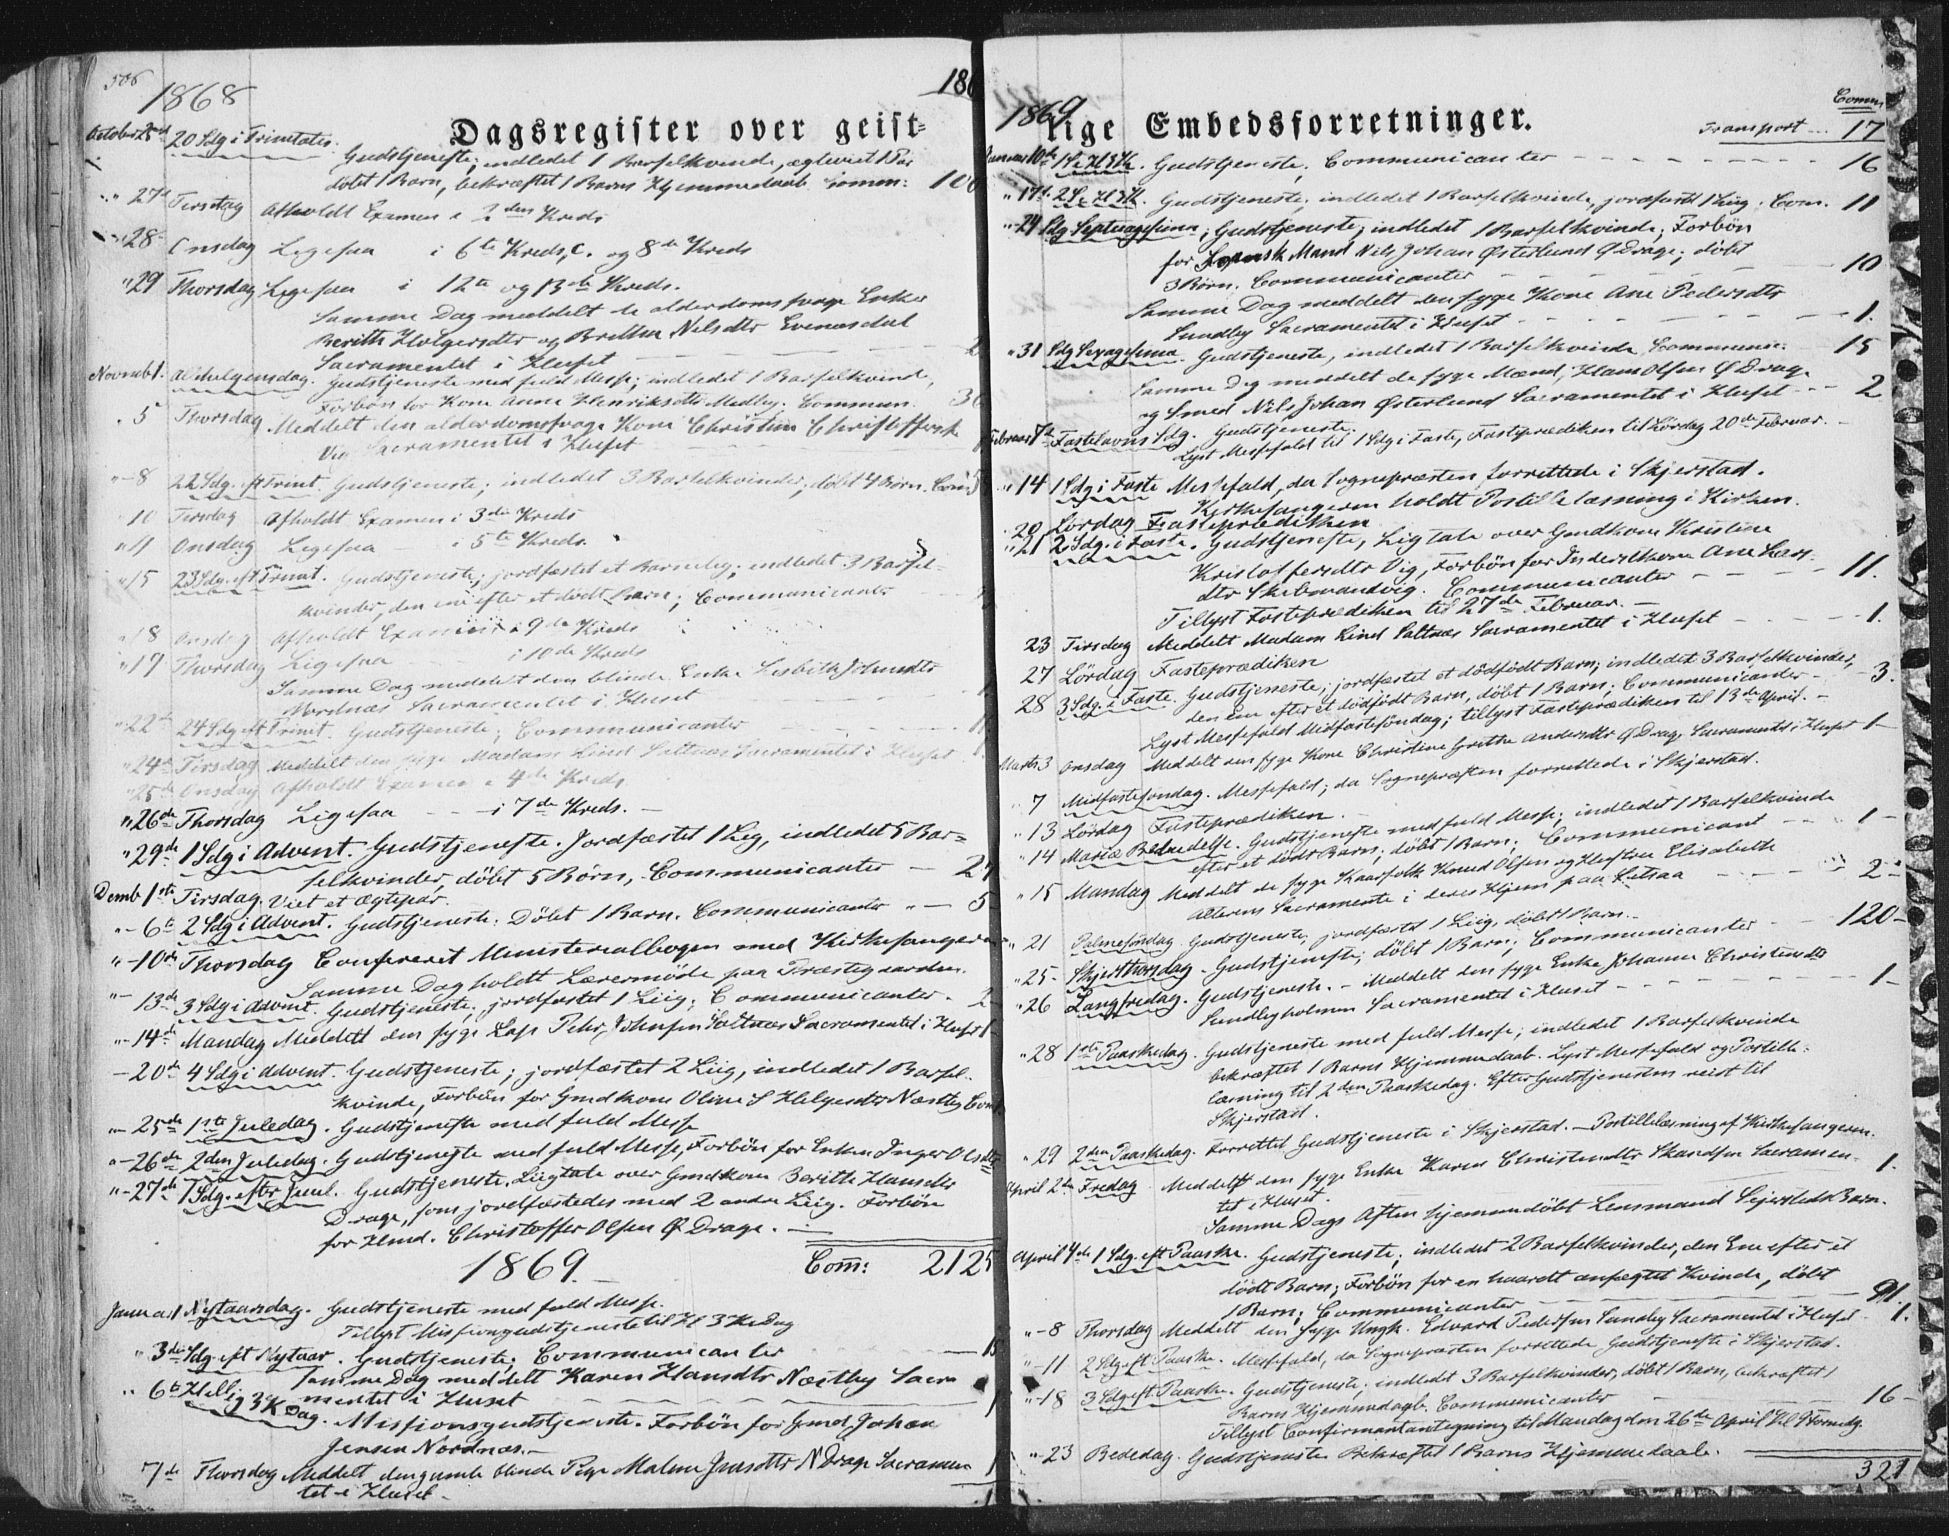 506
1868
186
Dagsregister over geist-
October 25de 20 Sdg i Trinitatis. Gudstjeneste; indledet 1 Barselkvinde, ægteviet 1 Par
döbt 1 Barn, bekræftet 1 Barns Hjemmedaab Comm: 100
" 27de Tirsdag Afholdt Examen i 2den Kreds
" 28 Onsdag Ligesaa i 6te Kreds, C. og 8de Kreds
" 29 Thorsdag Ligesaa i 12te og 13de Kreds.
Samme Dag meddelt de alderdomssvage Enker
Berith Holgersdtr og Brethe Nilsdtr Evenesdal
Sacramentet i Huset 2
Novemb 1. Allehelgensdag. Gudstjeneste med fuld Messe; indledet 1 Barselkvinde,
Forbön for Kone Anne Henriksdtr Medby. Commun. 36
" 5 Thorsdag Meddelt den alderdomssvage Kone Christine Christoffersdtr
Vig Sacramentet i Huset 1
" - 8 22 Sdg. eft Trinit. Gudstjeneste; indledet 3 Barselkvinder; döbt 4 Börn. Com: 5
" 10 Tirsdag Afholdt Examen i 3die Kreds
" 11 Onsdag Ligesaa i 5te Kreds.
" 15 23 Sdg. eft Trinit. Gudstjeneste; jordfæstet et Barnelig; indledet 3 Barsel-
kvinder, den ene efter et dödt Barn; Communicanter
" 18 Onsdag Afholdt Examen i 9de Kreds
" 19 Thorsdag Ligesaa i 10de Kreds
Samme Dag meddelt den blinde Enke Lisbeth Johnsdtr
Nordnæs Sacramentet i Huset
" 22de 24 Sdg eft Trinit. Gudstjeneste; Communicanter
" 24de Tirsdag Meddelt den syge Madam Lind Saltnæs Sacramentet i Huset
" 25de Onsdag Afholdt Examen i 4de Kreds
" 26de Thorsdag Ligesaa — i 7de Kreds. —
" 29de 1 Sdg i Advent. Gudstjeneste. Jordfæstet 1 Lig, indledet 5 Bar-
selkvinder, döbt 5 Börn, Communicanter — 27
Decmb 1ste Tirsdag. Viet et Ægtepar.
" - 6te 2 Sdg i Advent. Gudstjeneste. Döbt 1 Barn. Communicanter " — 5
" - 10de Thorsdag Confereret Ministerialbogen med Kirkesangeren
Samme Dag holdt Lærermöde paa Præstegaarden.
" - 13de 3 Sdg i Advent. Gudstjeneste; jordfæstet 1 Liig; Communicanter. 2
" - 14de Mandag Meddelt den syge Lap Pehr Johnsen Saltnæs Sacramentet i Huset 1
— 20de 4 Sdg i Advent. Gudstjeneste; jordfæstet 2 Liig, indledet 1 Barsel-
kvinde, Forbön for Gmdkone Oline S Helgesdtr Næstby Com
" - 25de 1ste Juledag. Gudstjeneste med fuld Messe
" - 26de 2den Juledag. Gudstjeneste med fuld Messe, Forbön for Enken Inger Olsdtr
" - 27de 1 Sdg. efter Juul. Gudstjeneste, Liigtale over Gmdkone Berith Hansdtr
Drage, som jordfæstedes med 2 andre Liig. Forbön
for Hmd. Christoffer Olsen Ø Drage. —
1869. Com: 2125
Januar 1 Nytaarsdag. Gudstjeneste med fuld Messe.
Tillyst Missionsgudstjeneste til Hl 3 K Dag
" 3die Sdg eft Nytaar. Gudstjeneste; Communicanter — 15
Samme Dag meddelt Karen Hansdtr Næstby Sacra
mentet i Huset 1
" 6te Hellig 3 K Dag. Missionsgudstjeneste. Forbön for Gmd Johan
Jensen Nordnæs. —
7de Thorsdag Meddelt den gamle blinde Pige Malene Jensdtr N Drage Sacramen 1
tet i Huset —
1869
lige Embedsforretninger.
Comm
Transport... 17
Januar 10de 1 S. e. H 3 K. Gudstjeneste; Communicanter 16
" 17de 2 S. e. H 3 K. Gudstjeneste; indledet 1 Barselkvinde, jordfæstet 1 Liig. Com. 11
" 24 Sdg Septuagesima; Gudstjeneste; indledet 1 Barselkvinde; Forbön
for Svensk Mand Nils Johan Østerlund Ø Drage; döbt
3 Börn. Communicanter 10
Samme Dag meddelt den syge Kone Ane Pedersdtr
Sundby Sacramentet i Huset 1.
" 31 Sdg Sexagesima. Gudstjeneste, indledet 1 Barselkvinde. Communic: 15
Samme Dag meddelt de syge Mænd, Hans Olsen Ø Drage
og Smed Nils Johan Østerlund Sacramentet i Huset 2
Februar 7de Fastelavns Sdg. Gudstjeneste.
Lyst Messefald til 1 Sdg i Faste, Fasteprædiken til Lördag 20de Februar.
" 14 1 Sdg i Faste Messefald, da Sognepræsten forrettede i Skjerstad.
Kirkesangeren holdt Postillelæsning i Kirken.
" 20 Lördag Fasteprædiken
" 21 2 Sdg. i Faste. Gudstjeneste, Ligtale over Gmdkone Kristine
Kristoffersdtr Vig, Forbön for Inderstkone Ane Lars-
dtr Skibmandvig. Communicanter 11.
Tillyst Fasteprædiken til 27de Februar. —
23 Tirsdag Meddelt Madam Lind Saltnæs Sacramentet i Huset 1.
27 Lördag Fasteprædiken
28 3 Sdg. i Faste. Gudstjeneste; jordfæstet et dödfödt Barn; indledet 3 Barselkvinder,
den ene efter et dödfödt Barn, döbt 1 Barn; Communicanter 3.
Lyst Messefald Midfastesöndag; tillyst Fasteprædiken til 13de April. —
Marts 3 Onsdag Meddelt den syge Kone Christine Grethe Andersdtr Ø Drage Sacramentet i Huset 1 —
" 7 Midfastesöndag. Messefald; da Sognepræsten forrettede i Skjerstad.
" 13 Lördag Fasteprædiken.
" 14 Mariæ Bebudelse. Gudstjeneste med fuld Messe; indledet 1 Barselkvinde
efter et dödt Barn; döbt 1 Barn; Communicant 1 —
" 15 Mandag Meddelt de syge Kaarfolk Knud Olsen og Hustru Elisabeth
Alterens Sacramente i deres Hjem paa Letsaa 2 —
" 21 Palmesöndag Gudstjeneste, jordfæstet 1 Liig, döbt 1 Barn. —
" 25 - Skjærthorsdag. Gudstjeneste; döbt 1 Barn; Communicanter 120 —
" 26 Langfredag. Gudstjeneste. — Meddelt den syge Enke Johanna Christensdtr
Sundbyholmen Sacramentet i Huset 1 —
" 28 1ste Paaskedag. Gudstjeneste med fuld Messe; indledet 1 Barselkvinde
bekræftet 1 Barns Hjemmedaab. Lyst Messefald og Postille-
læsning til 2den Paaskedag. Efter Gudstjenesten reist til
Skjerstad.
" 29 2den Paaskedag. Forrettet Gudstjeneste i Skjerstad. — Postillelæsning af Kirkesangeren.
April 2de Fredag Meddelt den syge Enke Karen Christensdtr Skandsen Sacramen- 1.
tet i Huset.
Samme Dags Aften hjemmedöbt Lensmand Sejersteds Barn.
April 4de 1 Sdg. eft Paaske. Gudstjeneste; indledet 2 Barselkvinder, den Ene efter et
dödt Barn; Forbön for en haardt anfægtet Kvinde, döbt
1 Barn; Communicanter 91.
" - 8 Thorsdag Meddelt den syge Ungk. Edvard Pedersen Sundby Sacramentet i Huset 1.
" - 11 2 Sdg eft Paaske. Messefald, da Sognepræsten forrettede Gudstjeneste i Skjerstad.
" - 18 3 Sdg eft. Paaske. Gudstjeneste; indledet 3 Barselkvinder, döbt 1 Barn, bekræftet 1
Barns Hjemmedaab. Communicanter 16 —
Tillyst Confirmantantegning til Mandag den 26de April Kl 9 Formdg.
" - 23 Bededag. Gudstjeneste Bekræftet 1 Barns Hjemmedaab.
321